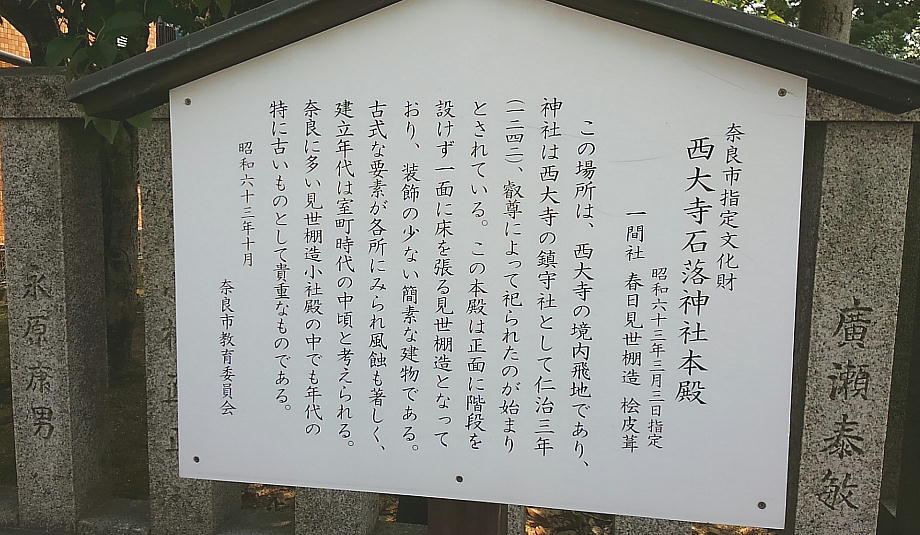 奈良市指定文化財
西大寺石落神社本殿
昭和六十三年三月三日指定
一間社 春日見世棚造 桧皮葺
この場所は、西大寺の境内飛地であり、
神社は西大寺の鎮守社として仁治三年
(一二四二)、叡尊によって祀られたのが始まり
とされている。この本殿は正面に階段を
設けず一面に床を張る見世棚造となって
おり、装飾の少ない簡素な建物である。
古式な要素が各所にみられ風蝕も著しく、
建立年代は室町時代の中頃と考えられる。
奈良に多い見世棚造小社殿の中でも年代の
特に古いものとして貴重なものである。
昭和六十三年十月
奈良市教育委員会
廣瀬泰敏